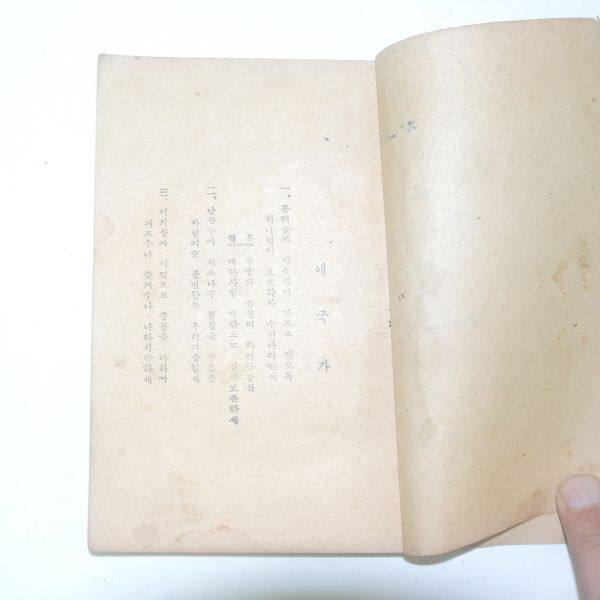 애국가
一、 동해물과 백두산이 마르고 닳도록
하나님이 보호하사 우리나라만세
후렴 무궁화 삼천리 화려한강산
대한사람 대한으로 길이보존하세
二、 남산우에 저소나무 철갑을 두른듯
바람이슬 불변함은 우리기상일세
三、 이기상과 이맘으로 충성을 다하여
괴로우나 즐거우나 나라사랑하세